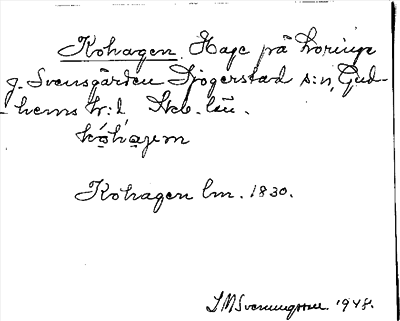 Kohagen. Hage på Loringe
g. Svensgården Djogerstad s:n, Gud-
hems h:d, Skb. län.
kóhàgen
Kohagen lm. 1830.
1948.